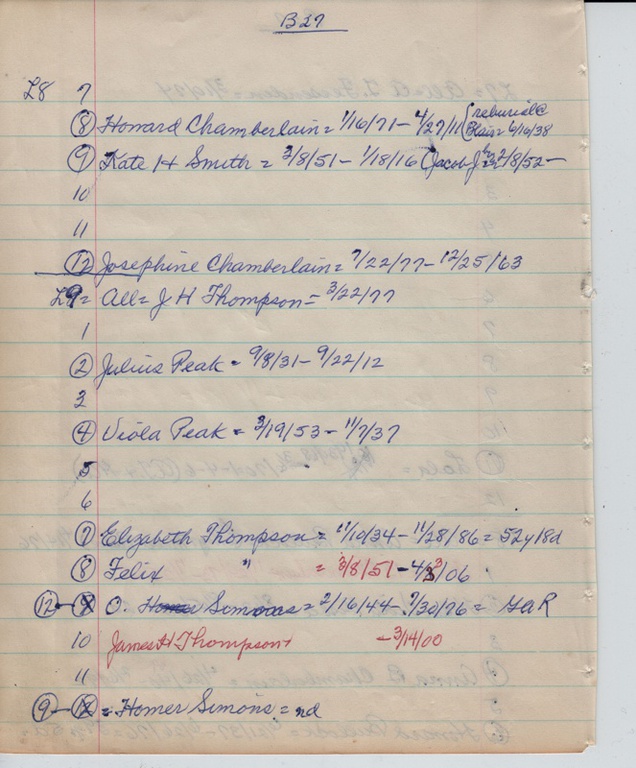 B27
L8 7
⑧ Howard Chamberlain = 1/16/71 - 4/27/11 (reburial @
Blair = 6/16/38
⑨ Kate H Smith = 3/8/51 - 1/18/16 (Jacob J 2/8/52 -
10
11
⑫ Josephine Chamberlain = 7/22/77 - 12/25/63
L9 = All = J H Thompson = 3/22/77
1
② Julius Peak = 9/8/31 - 9/22/12
3
④ Viola Peak = 3/19/53 - 11/7/37
5
6
⑦ Elizabeth Thompson = 11/10/34 - 11/28/86 = 52y18d
⑧ Felix " = 3/8/51 - 4/3/06
⑫ - 9 O. Homer Simons = 2/16/44 - 7/30/76 = GAR
10 James H Thompson - 3/14/00
11
⑨ - 12 = Homer Simons = nd